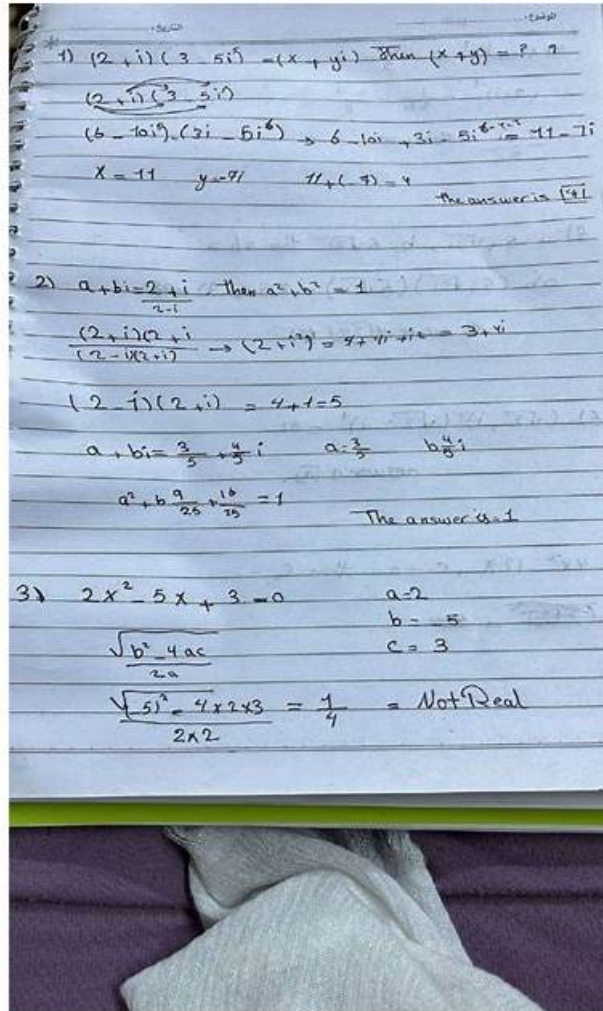 الموضوع: التاريخ:
1) (2 + i) (3 - 5i⁵) = (x + yi) then (x + y) = ? ?
(2 + i) (3 - 5i⁵)
(6 - 10i⁵) (3i - 5i⁶) → 6 - 10i + 3i - 5i⁶ = 11 - 7i
x = 11 y = -7i 11 + (-7) = 4
the answer is 4
2) a + bi = 2 + i / 2 - i then a² + b² = 1
(2 + i)(2 + i / (2 - i)(2 + i) → (2 + i²) = 4 + 4i + i² = 3 + 4i
(2 - i)(2 + i) = 4 + 1 = 5
a + bi = 3/5 + 4/5 i a = 3/5 b 4/5 i
a² + b 9/25 + 16/25 = 1
The answer is = 1
3) 2x² - 5x + 3 = 0 a = 2
b = -5
√b² - 4ac / 2a c = 3
√(5)² - 4 × 2 × 3 / 2 × 2 = 1/4 = Not Real